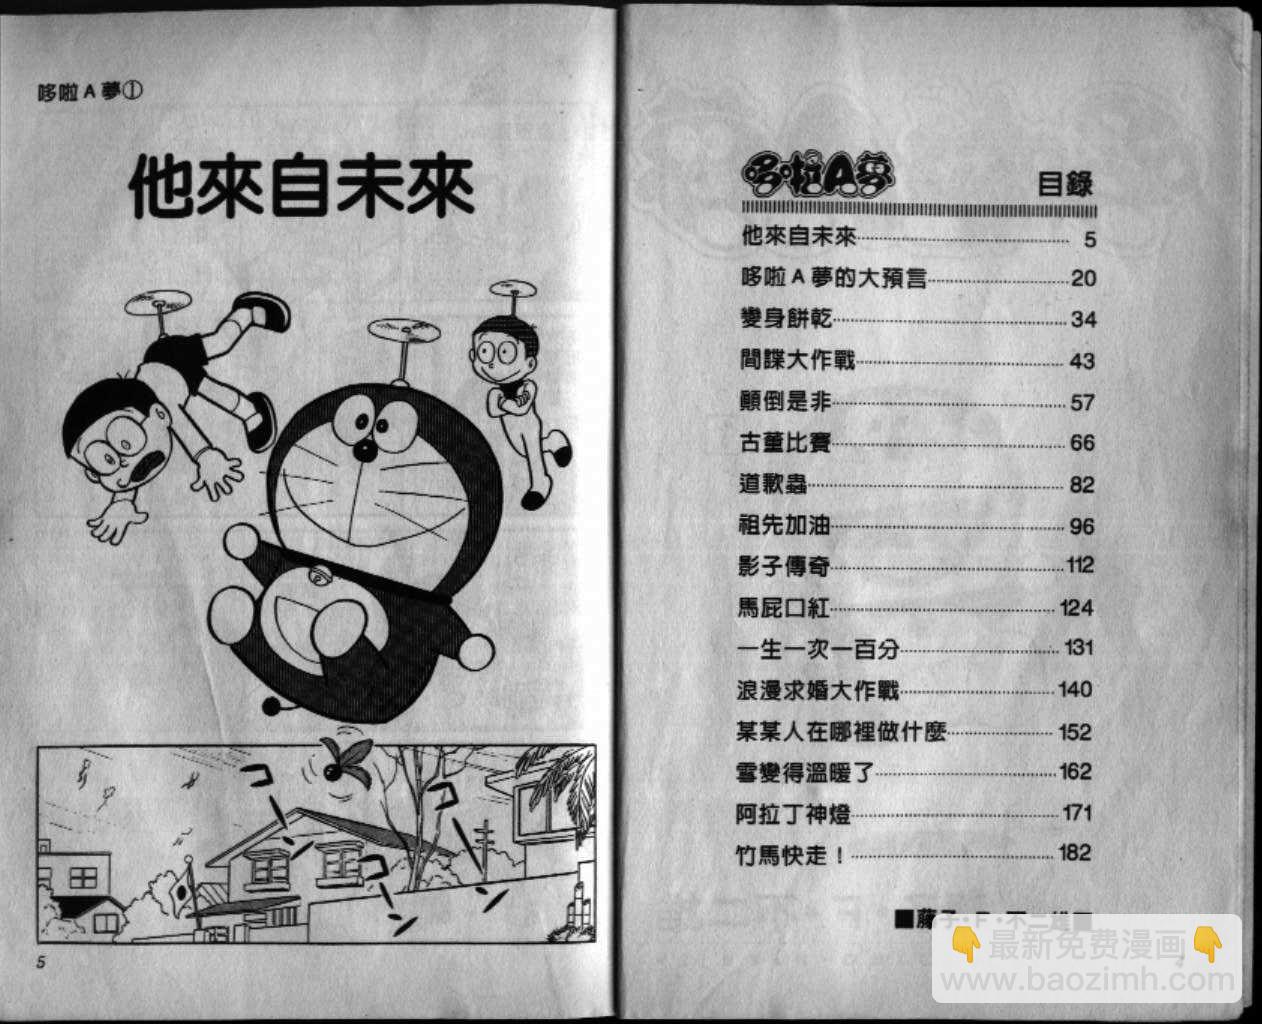 哆啦A夢①
他來自未來
コン
コン
コン
5
哆啦A夢 目錄
他來自未來 5
哆啦A夢的大預言 20
變身餅乾 34
間諜大作戰 43
顛倒是非 57
古董比賽 66
道歉蟲 82
祖先加油 96
影子傳奇 112
馬屁口紅 124
一生一次一百分 131
浪漫求婚大作戰 140
某某人在哪裡做什麼 152
雪變得溫暖了 162
阿拉丁神燈 171
竹馬快走！ 182
■藤子·F·不二雄■
最新免费漫画
www.baozimh.com